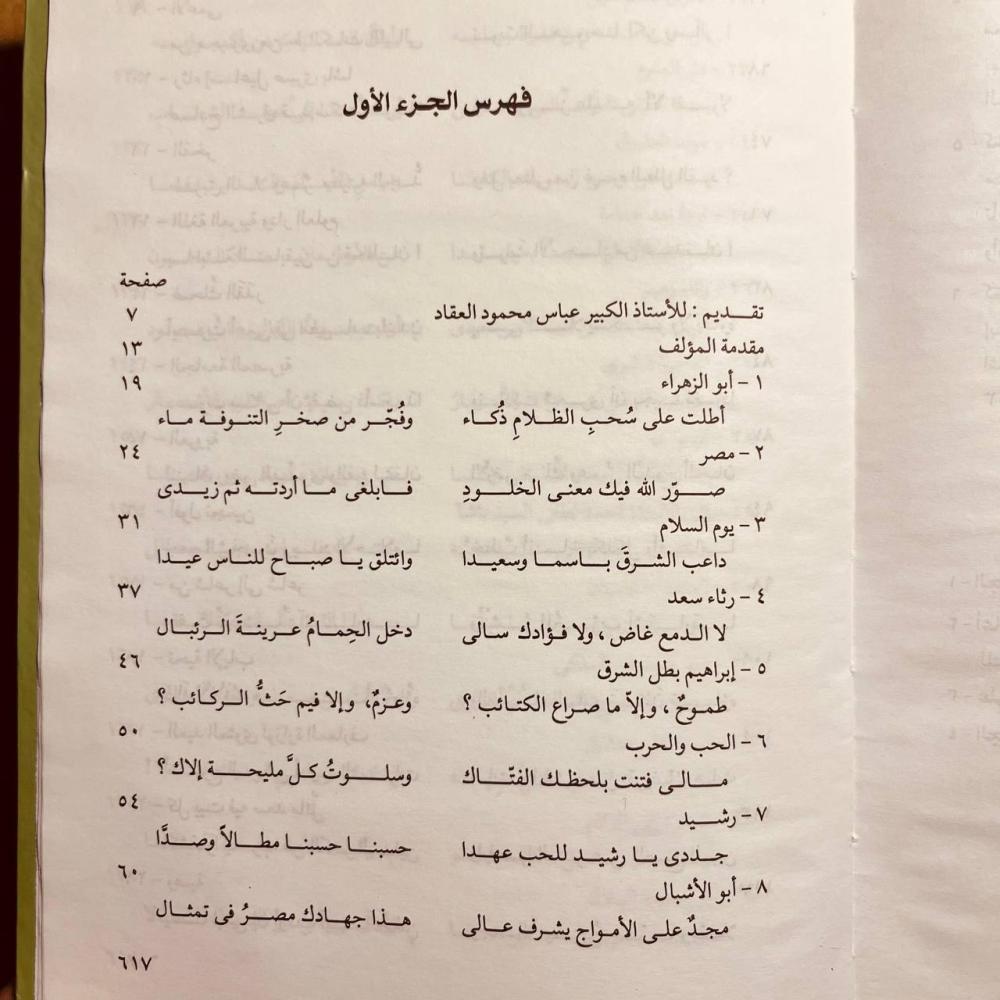 فهرس الجزء الأول
صفحة
تقـــديم : للأستاذ الكبير عباس محمود العقاد ٧
مقدمة المؤلف ١٣
١ - أبو الزهراء ١٩
أطلت على سُحبِ الظلامِ ذُكاء وفُجّر من صخرِ التنوفة ماء
٢ - مصر ٢٤
صوّر الله فيك معنى الخلودِ فابلغى ما أردته ثم زيدى
٣ - يوم السلام ٣١
داعب الشرقَ باسما وسعيدا وائتلق يا صباح للناس عيدا
٤ - رثاء سعد ٣٧
لا الدمع غاض ، ولا فؤادك سالى دخل الحِمامُ عرينةَ الرئبال
٥ - إبراهيم بطل الشرق ٤٦
طموحٌ ، وإلاّ ما صراع الكتائب ؟ وعزمٌ، وإلا فيم حَثُّ الركائب ؟
٦ - الحب والحرب ٥٠
مالى فتنت بلحظك الفتّاك وسلوتُ كلَّ مليحة إلاك ؟
٧ - رشيد ٥٤
جددى يا رشيد للحب عهدا حسبنا حسبنا مطالاً وصدًّا
٨ - أبو الأشبال ٦٠
مجدٌ على الأمواج يشرف عالى هذا جهادك مصرُ فى تمثال
٦١٧